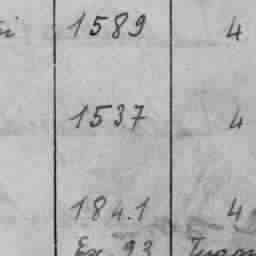 1589 4
1537 4
184.1 4
Ex 93